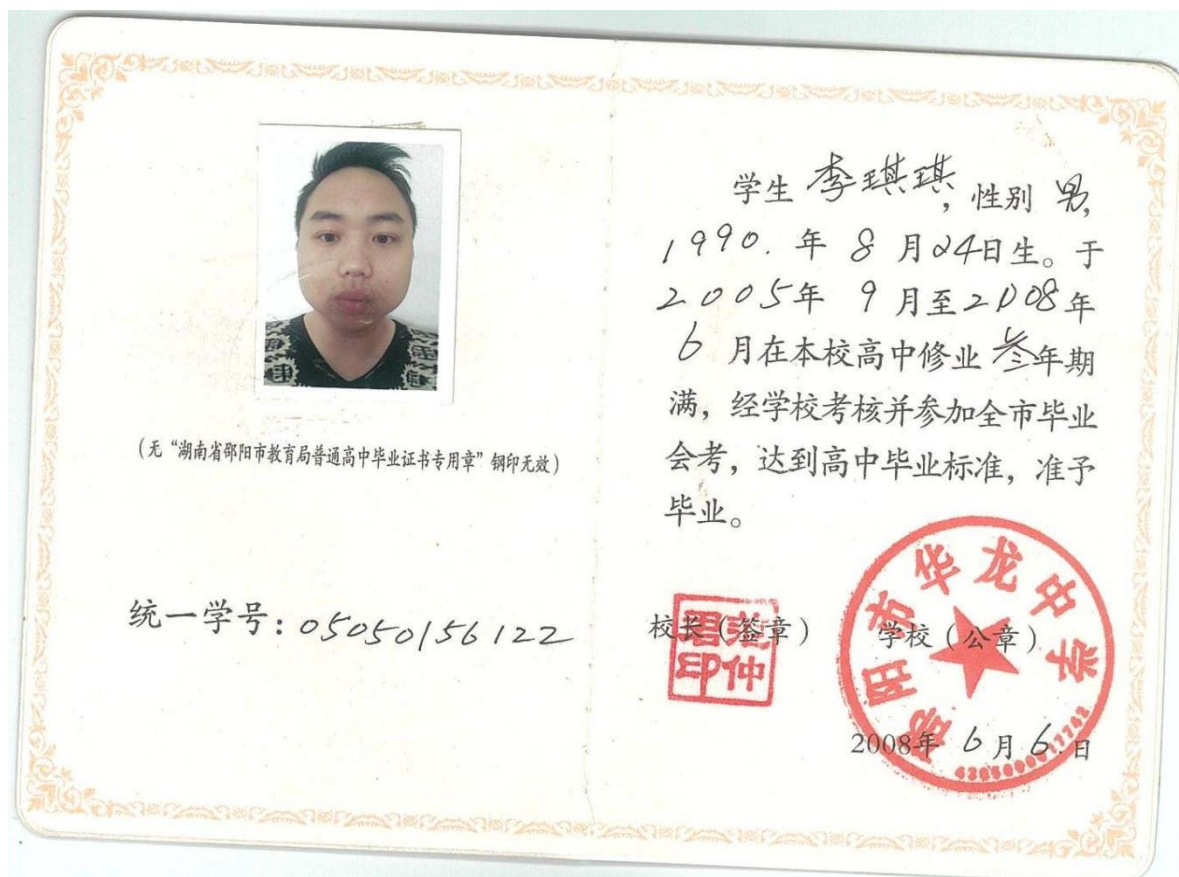 (无“湖南省邵阳市教育局普通高中毕业证书专用章”钢印无效)
统一学号:05050156122
学生 李琪琪,性别 男,
1990.年 8 月24日生。于
2005年 9 月至2008年
6 月在本校高中修业 叁年期
满,经学校考核并参加全市毕业
会考,达到高中毕业标准,准予
毕业。
校长(签章) 学校(公章)
邵阳市华龙中学
2008年 6 月 6 日